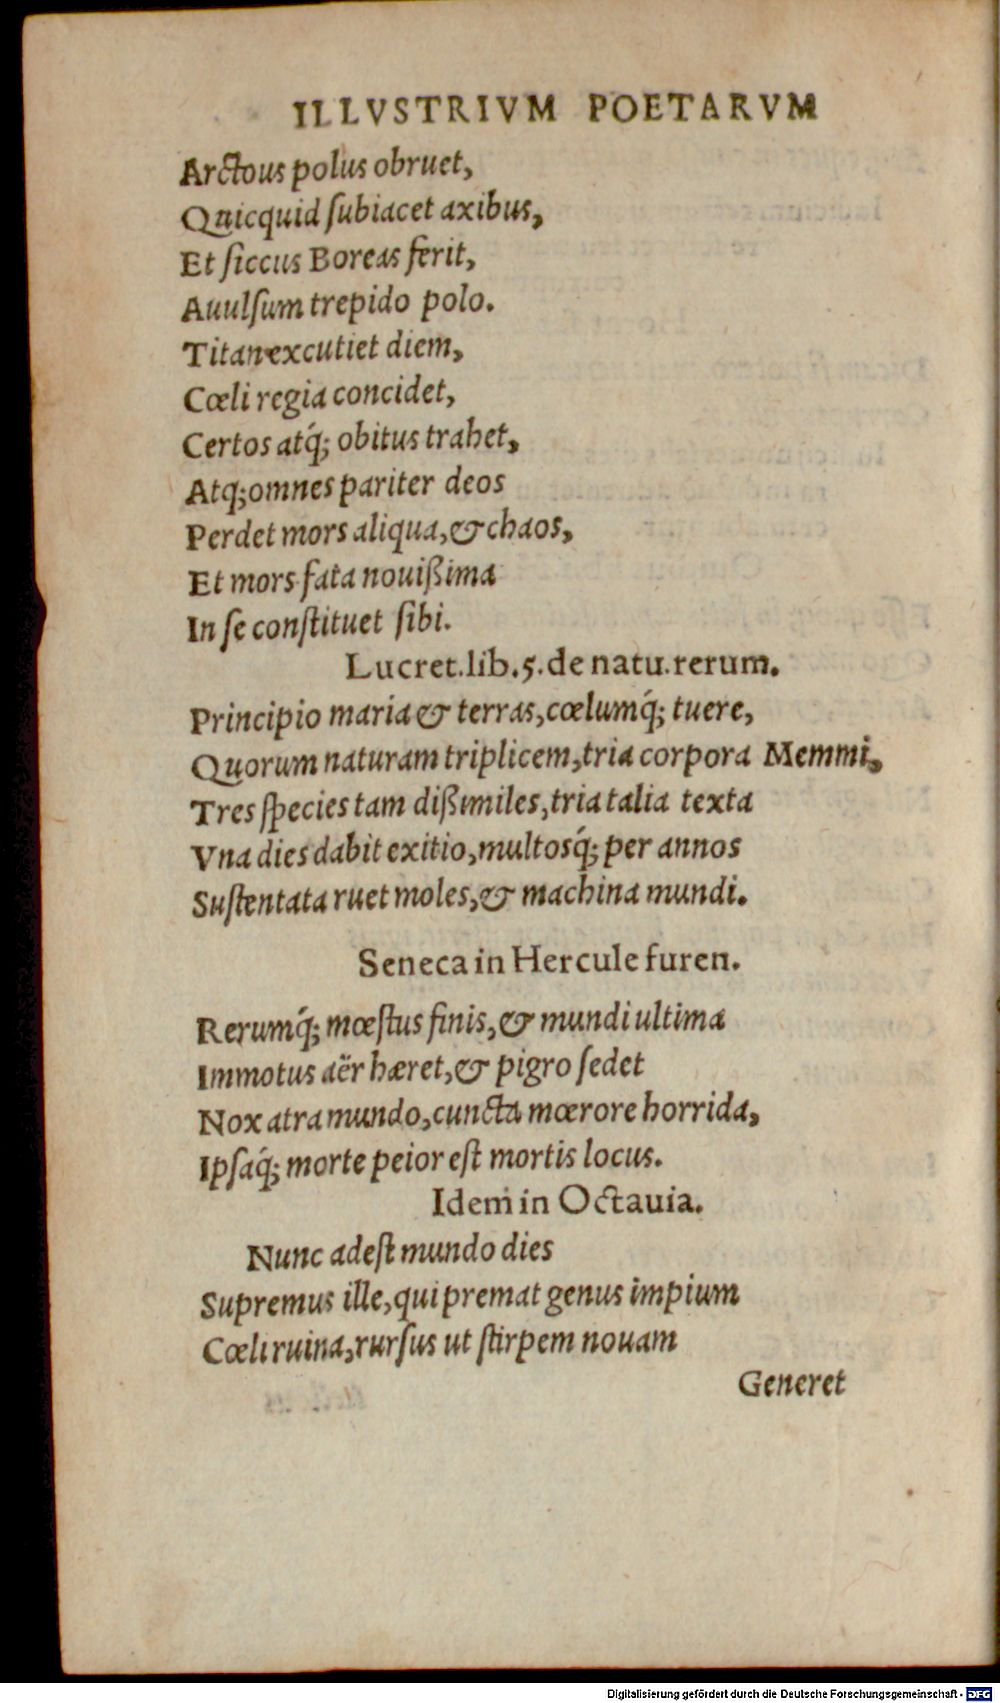 ILLVSTRIVM POETARVM
Arctous polus obruet,
Quicquid ſubiacet axibus,
Et ſiccus Boreas ferit,
Auulſum trepido polo.
Titan excutiet diem,
Cœli regia concidet,
Certos atq́; obitus trahet,
Atq; omnes pariter deos
Perdet mors aliqua, & chaos,
Et mors fata nouißima
In ſe conſtituet ſibi.
Lucret. lib. 5. de natu. rerum.
Principio maria & terras, cœlumq́; tuere,
Quorum naturam triplicem, tria corpora Memmi,
Tres ſpecies tam dißimiles, tria talia texta
Vna dies dabit exitio, multosq́; per annos
Suſtentata ruet moles, & machina mundi.
Seneca in Hercule furen.
Rerumq́; mœſtus finis, & mundi ultima
Immotus aër hæret, & pigro ſedet
Nox atra mundo, cuncta mœrore horrida,
Ipſaq́; morte peior eſt mortis locus.
Idem in Octauia.
Nunc adeſt mundo dies
Supremus ille, qui premat genus impium
Cœli ruina, rurſus ut ſtirpem nouam
Generet
Digitalisierung gefördert durch die Deutsche Forschungsgemeinschaft - DFG